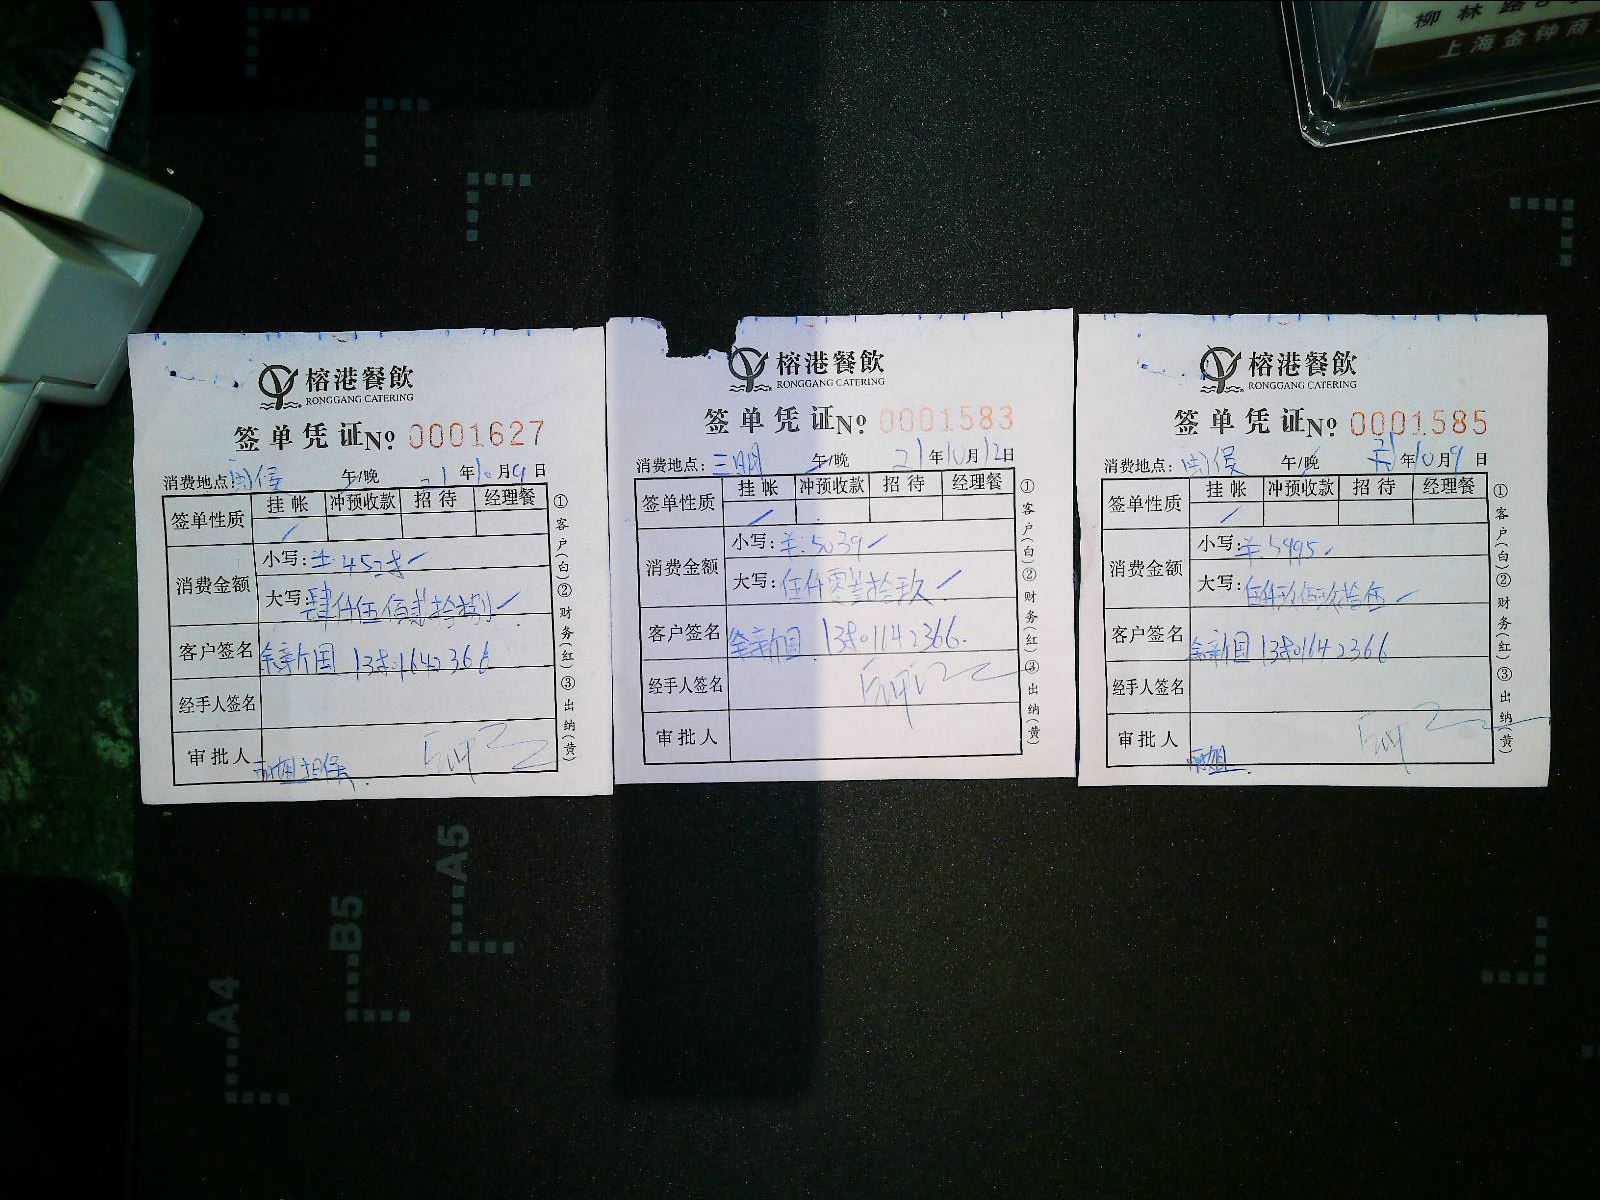 柳林路
上海金钟商
榕港餐飲
RONGGANG CATERING
签单凭证No 0001627
消费地点:闽侯 午/晚 21年10月9日
签单性质 挂帐 冲预收款 招待 经理餐
消费金额
小写:¥4528
大写:肆仟伍佰贰拾捌
客户签名 余新国 13801642366
经手人签名
审批人 丽姐担保
①客户(白)②财务(红)③出纳(黄)
榕港餐飲
RONGGANG CATERING
签单凭证No 0001583
消费地点:三明 午/晚 21年10月12日
签单性质 挂帐 冲预收款 招待 经理餐
消费金额
小写:¥:5039
大写:伍仟零叁拾玖
客户签名 余新国 13801642366.
经手人签名
审批人
①客户(白)②财务(红)③出纳(黄)
榕港餐飲
RONGGANG CATERING
签单凭证No 0001585
消费地点:闽侯 午/晚 21年10月9日
签单性质 挂帐 冲预收款 招待 经理餐
消费金额
小写:¥5995
大写:伍仟玖佰玖拾伍
客户签名 余新国 13801642366
经手人签名
审批人 丽姐.
①客户(白)②财务(红)③出纳(黄)
A5
B5
A4